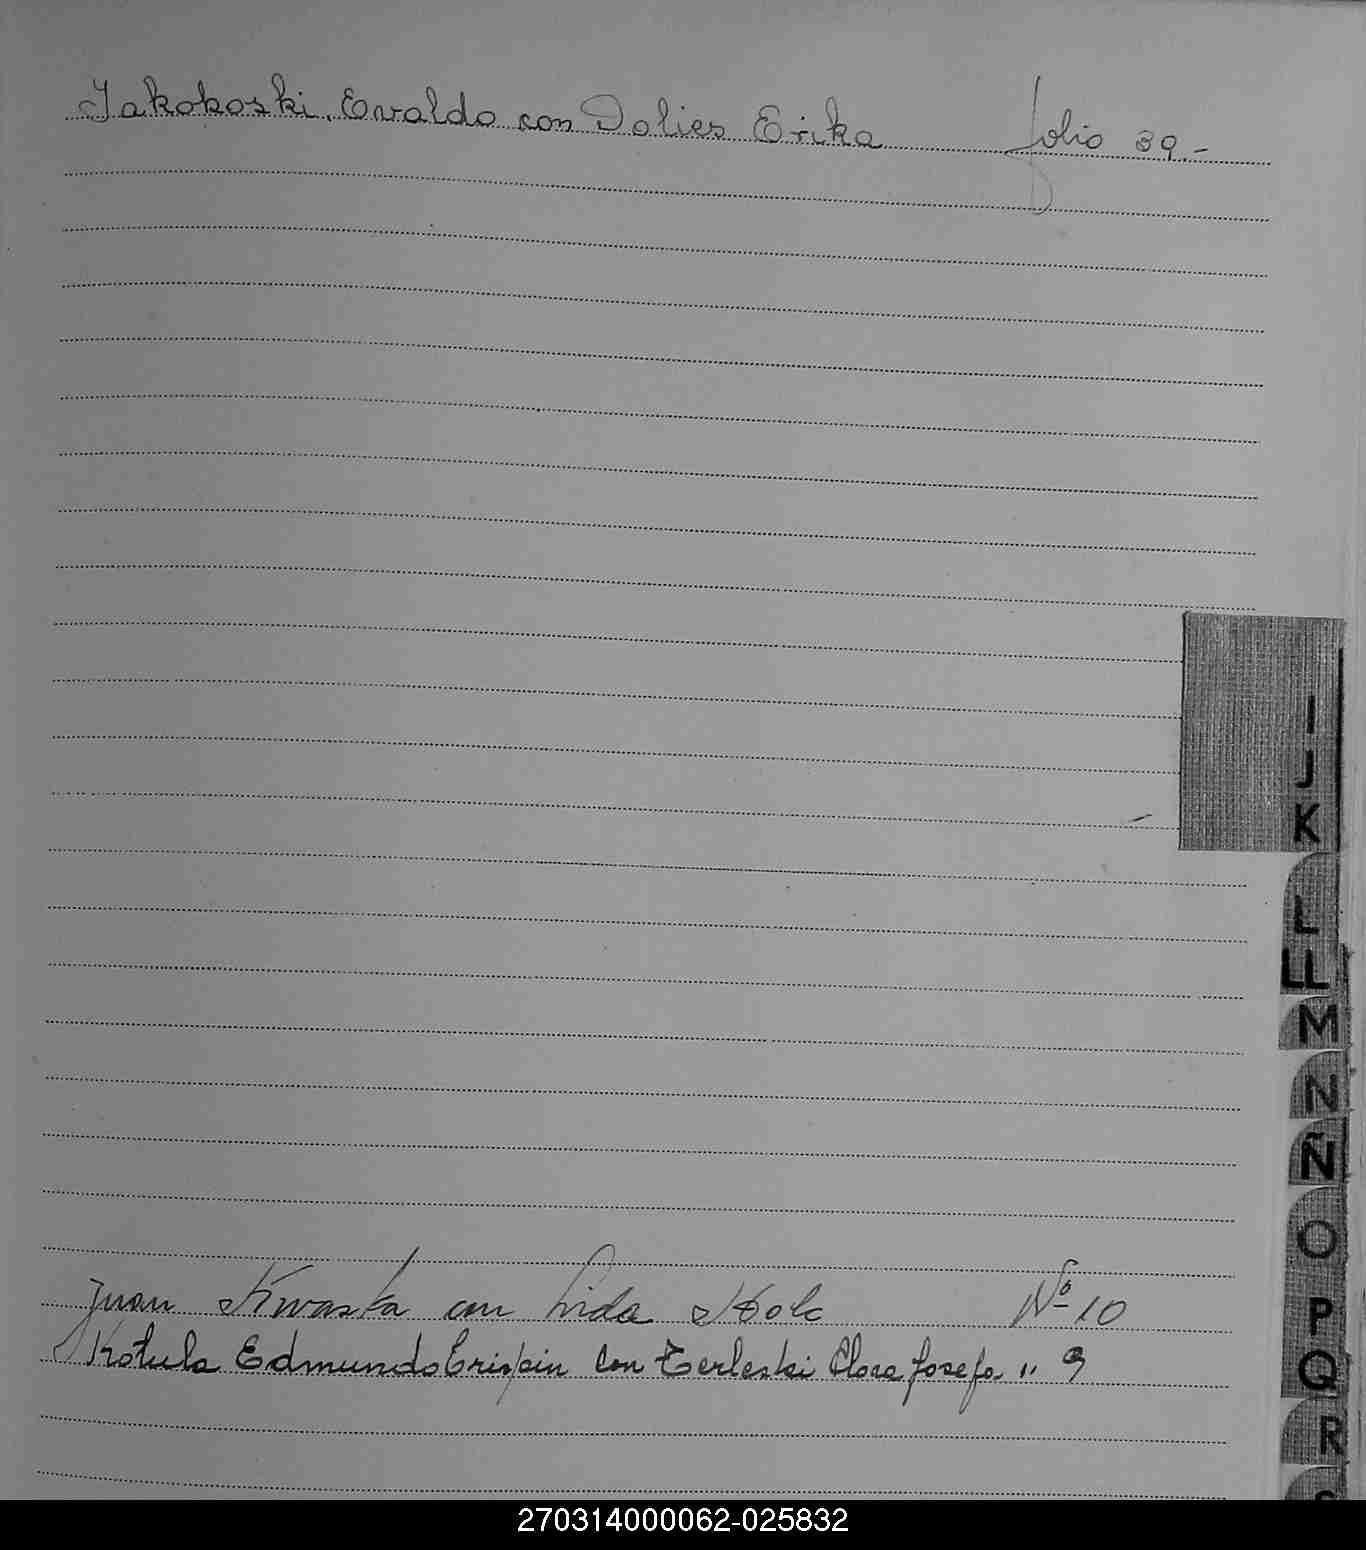 Jakokoski, Osvaldo con Dolies Erika folio 39.-
I
J
K
L
LL
M
N
Ñ
O
Juan Kwasta con Lida Kole Nº 10
P
Kotula Edmundo Crispin con Terleski Clara Josefa " 9
Q
R
270314000062-025832